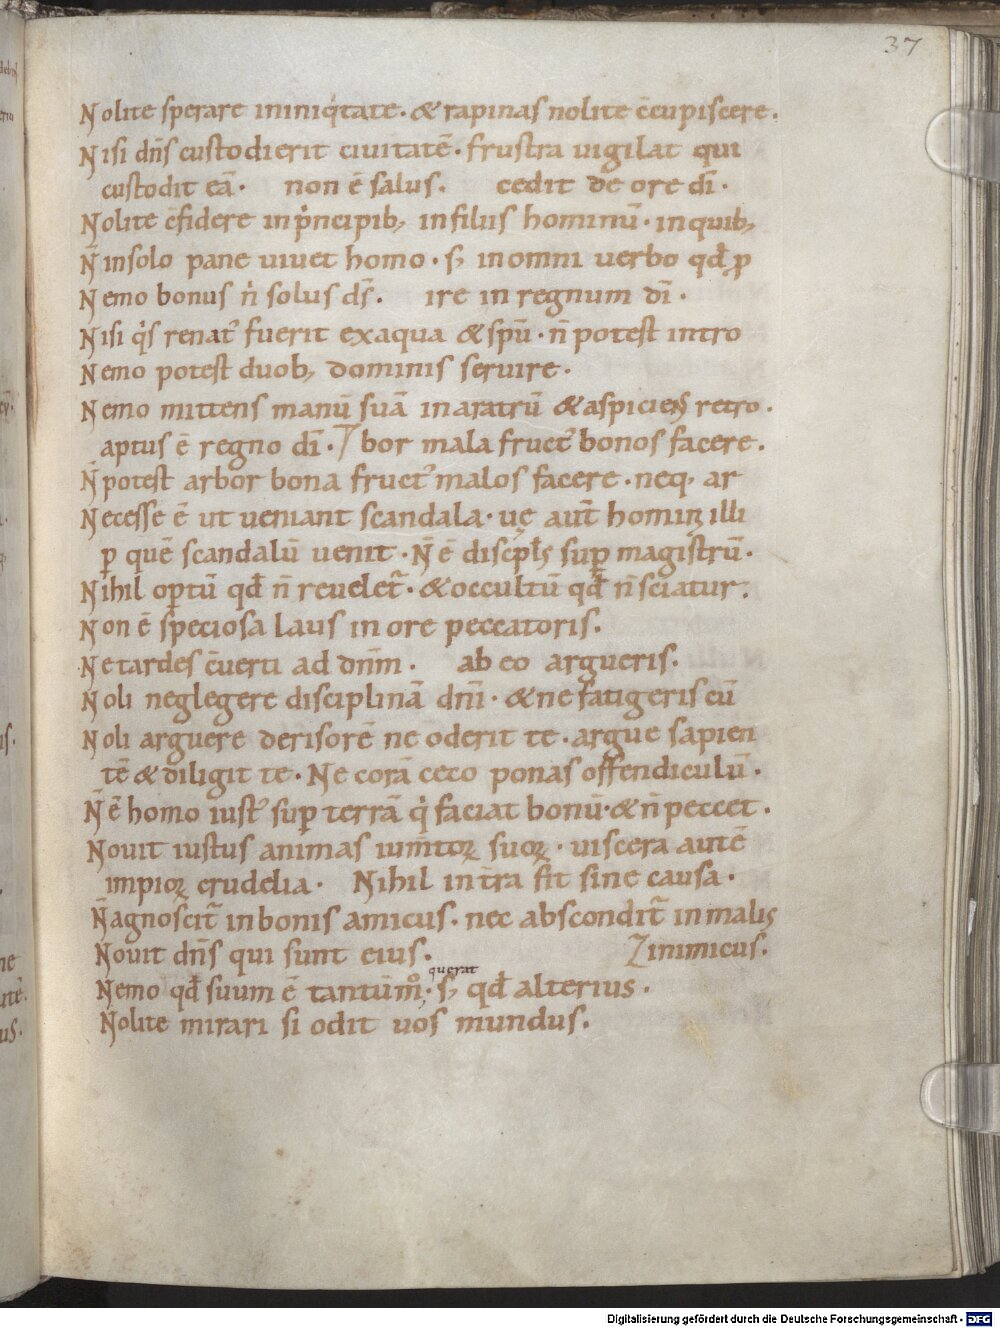 37
Nolite sperare ininiq̍tate · & rapinas nolite c̄cupiscere .
Nisi dn̄s custodierit ciuitatē · frustra uigilat qui
custodit eā · non ē salus . cedit de ore dī .
Nolite c̄fidere in p̍ncipib; in filiis hominū · in quib;
N̄ in solo pane uiuet homo · s; in omni uerbo qđ ꝓ
Nemo bonus n̍ solus ds̄ . ire in regnum dī .
Nisi q̍s renat᾽ fuerit ex aqua & spū · n̄ potest intro
Nemo potest duob; dominis seruire .
Nemo mittens manū suā in aratrū & aspiciens retro .
aptus ē regno dī . / bor mala fruct᾽ bonos facere .
N̄ potest arbor bona fruct᾽ malos facere · neq; ar
Necesse ē ut ueniant scandala · uę aut̄ homini illi
p̱ quē scandalū uenit · N̄ ē discip̄ls sup̱ magistrū .
Nihil op̱tū qđ n̄ reuelet᷑ · & occultū qđ n̄ sciatur .
Non ē speciosa laus in ore peccatoris .
Ne tardes c̄uerti ad dn̄m . ab eo argueris .
Noli neglegere disciplinā dn̄i · & ne fatigeris cū
Noli arguere derisorē ne oderit te . argue sapien
tē & diligit te · Ne corā ceco ponas offendiculū .
N̄ ē homo iust᾽ sup̱ terrā q̍ faciat bonū · & n̄ peccet .
Nouit iustus animas ium̄toꝝ suoꝝ · uiscera autē
impioꝝ crudelia · Nihil in t̄ra fit sine causa .
N̄ agnoscit᷑ in bonis amicus . nec abscondit᷑ in malis
Nouit dn̄s qui sunt eius . / inimicus .
querat
Nemo qđ suum ē tantūm̊ . s; qđ alterius .
Nolite mirari si odit uos mundus .
Digitalisierung gefördert durch die Deutsche Forschungsgemeinschaft - DFG